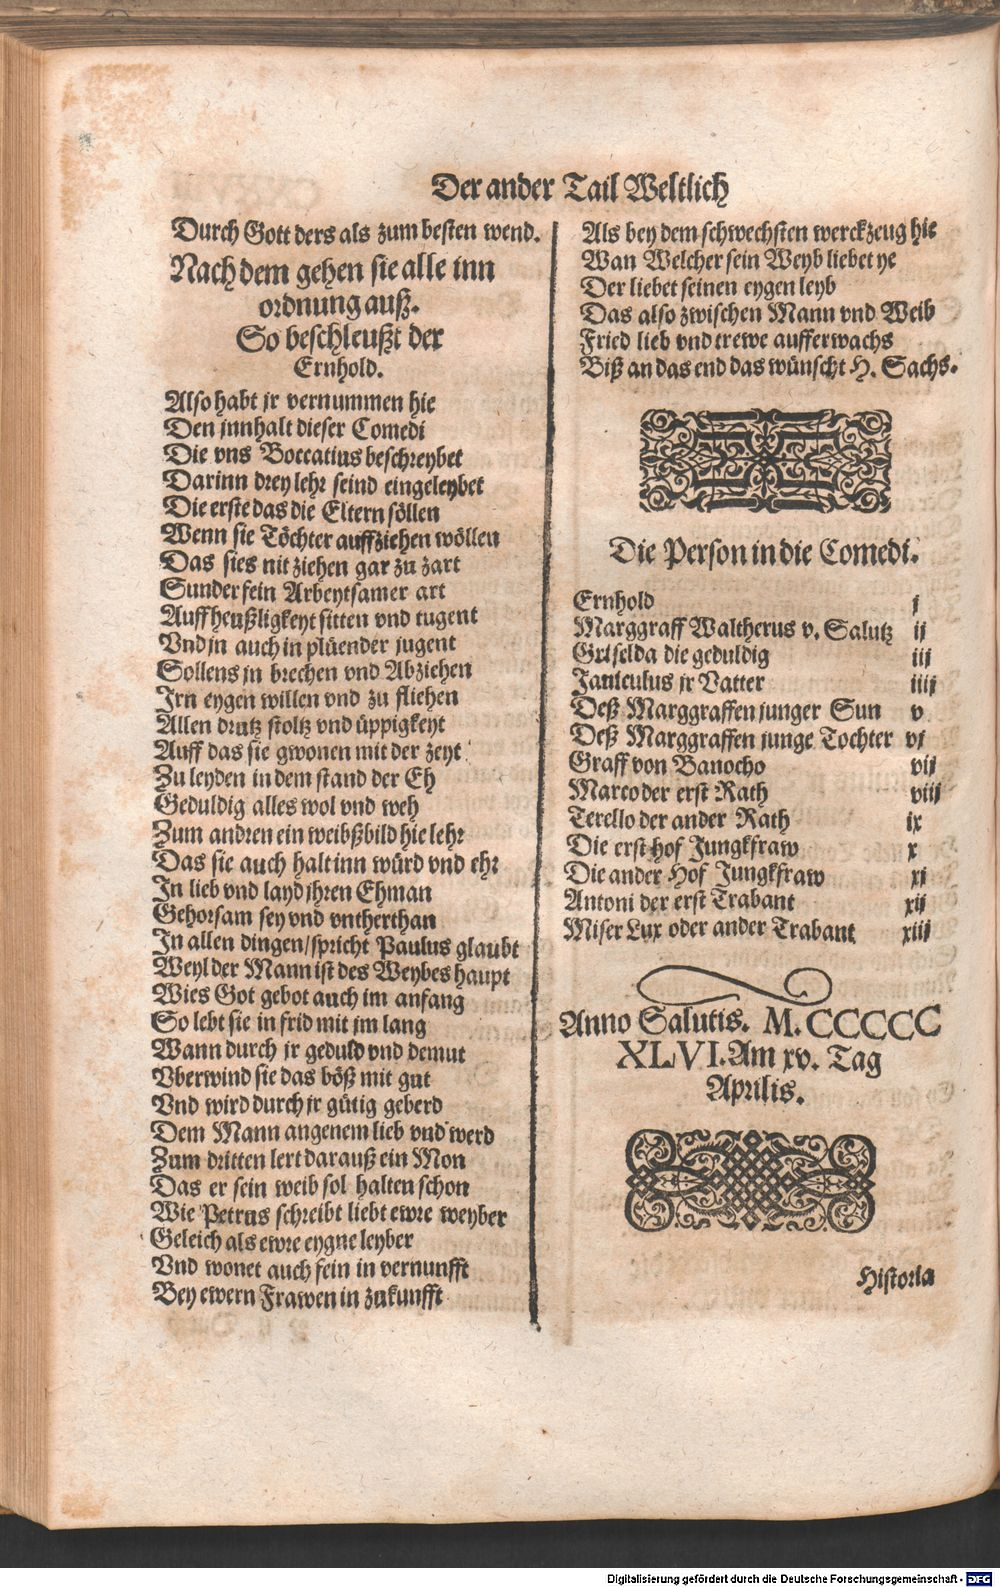 Der ander Tail Weltlich
Durch Gott ders als zum besten wend.
Nach dem gehen sie alle inn
ordnung auß.
So beschleußt der
Ernhold.
Also habt jr vernummen hie
Den jnnhalt dieser Comedi
Die vns Boccatius beschreybet
Darinn drey lehr seind eingeleybet
Die erste das die Eltern söllen
Wenn sie Töchter auffziehen wöllen
Das sies nit ziehen gar zu zart
Sunder fein Arbeytsamer art
Auff heußligkeyt sitten vnd tugent
Vnd jn auch in plüender jugent
Sollens jn brechen vnd Abziehen
Irn eygen willen vnd zu fliehen
Allen drutz stoltz vnd üppigkeyt
Auff das sie gwonen mit der zeyt
Zu leyden in dem stand der Eh
Geduldig alles wol vnd weh
Zum andren ein weibßbild hie lehr
Das sie auch halt inn würd vnd ehr
In lieb vnd layd jhren Ehman
Gehorsam sey vnd vntherthan
In allen dingen/spricht Paulus glaubt
Weyl der Mann ist des Weybes haupt
Wies Got gebot auch im anfang
So lebt sie in frid mit jm lang
Wann durch jr geduld vnd demut
Vberwind sie das böß mit gut
Vnd wird durch jr gütig geberd
Dem Mann angenem lieb vnd werd
Zum dritten lert darauß ein Mon
Das er sein weib sol halten schon
Wie Petrus schreibt liebt ewre weyber
Geleich als ewre eygne leyber
Vnd wonet auch fein in vernunfft
Bey ewern Frawen in zukunfft
Als bey dem schwechsten werckzeug hie
Wan Welcher sein Weyb liebet ye
Der liebet seinen eygen leyb
Das also zwischen Mann vnd Weib
Fried lieb vnd trewe aufferwachs
Biß an das end das wünscht H. Sachs.
Die Person in die Comedi.
Ernhold j
Marggraff Waltherus v. Salutz ij
Griselda die geduldig iij
Janiculus jr Vatter iiij
Deß Marggraffen junger Sun v
Deß Marggraffen junge Tochter vj
Graff von Banocho vij
Marco der erst Rath viij
Terello der ander Rath ix
Die erst hof Jungkfraw x
Die ander Hof Jungkfraw xi
Antoni der erst Trabant xij
Miser Lux oder ander Trabant xiij
Anno Salutis. M. CCCCC
XLVI. Am xv. Tag
Aprilis.
Historia
Digitalisierung gefördert durch die Deutsche Forschungsgemeinschaft - DFG